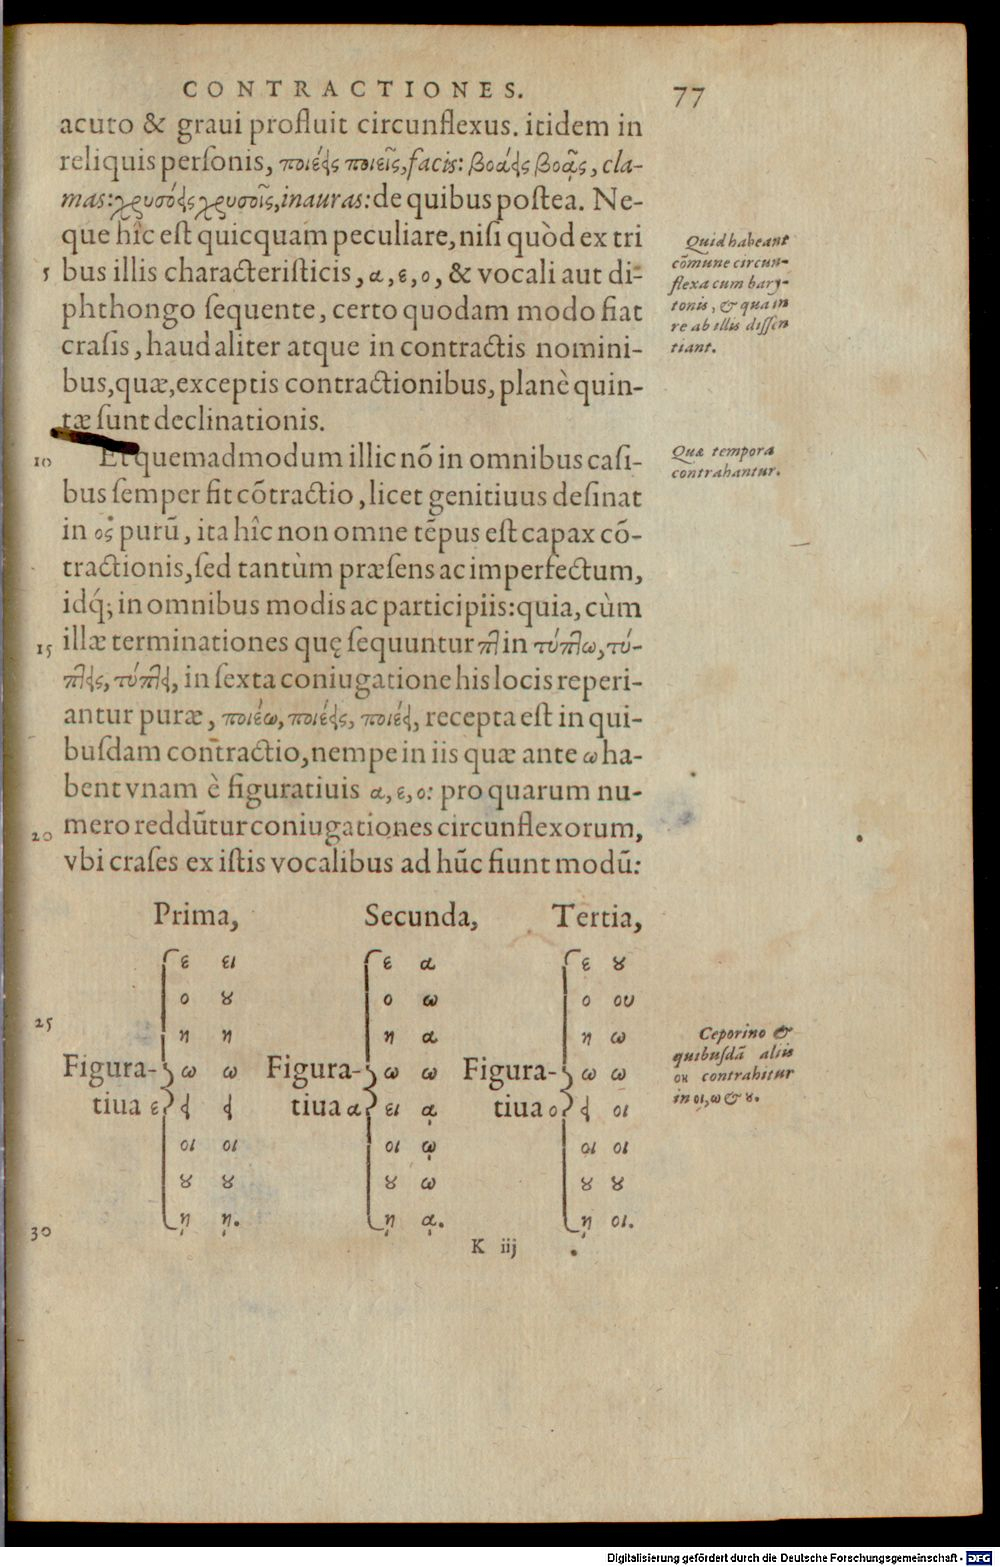 CONTRACTIONES. 77
acuto & graui profluit circunflexus. itidem in
reliquis personis, ποιέεις ποιεῖς, facis: βοάεις βοᾷς, cla-
mas: χρυσόεις χρυσοῖς, inauras: de quibus postea. Ne-
que hîc est quicquam peculiare, nisi quòd ex tri
5 bus illis characteristicis, α, ε, ο, & vocali aut di-
phthongo sequente, certo quodam modo fiat
crasis, haud aliter atque in contractis nomini-
bus, quæ, exceptis contractionibus, planè quin-
tæ sunt declinationis.
Quid habeant
cōmune circun-
flexa cum bary-
tonis, & qua in
re ab illis dissen
tiant.
10 Et quemadmodum illic nō in omnibus casi-
bus semper fit cōtractio, licet genitiuus desinat
in ος purū, ita hîc non omne tēpus est capax cō-
tractionis, sed tantùm præsens ac imperfectum,
idq́; in omnibus modis ac participiis: quia, cùm
15 illæ terminationes quę sequuntur πτ in τύπτω, τύ-
πτεις, τύπτει, in sexta coniugatione his locis reperi-
antur puræ, ποιέω, ποιέεις, ποιέει, recepta est in qui-
busdam contractio, nempe in iis quæ ante ω ha-
bent vnam è figuratiuis α, ε, ο: pro quarum nu-
20 mero reddūtur coniugationes circunflexorum,
vbi crases ex istis vocalibus ad hūc fiunt modū:
Quæ tempora
contrahantur.
Prima, Secunda, Tertia,
ε ει ε α ε ȣ
ο ȣ ο ω ο ου
25 η η η α η ω
Figura- ω ω Figura- ω ω Figura- ω ω
tiua ε ει ει tiua α ει ᾳ tiua ο ει οι
οι οι οι ῳ οι οι
ȣ ȣ ȣ ω ȣ ȣ
30 ῃ ῃ. ῃ ᾳ. ῃ οι.
Ceporino &
quibusdā aliis
οη contrahitur
in οι, ω & ȣ.
K iij
Digitalisierung gefördert durch die Deutsche Forschungsgemeinschaft - DFG